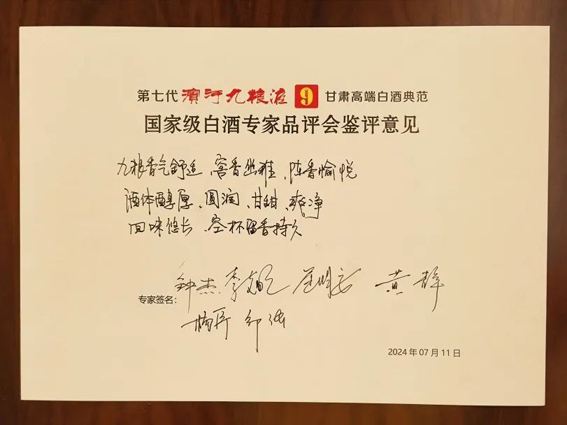 第七代 滨河九粮液 9 甘肃高端白酒典范
国家级白酒专家品评会鉴评意见
九粮香气舒适、窖香幽雅、陈香愉悦
酒体醇厚、圆润、甘甜、爽净
回味悠长、空杯留香持久
钟杰 黄静
专家签名：
2024年07月11日